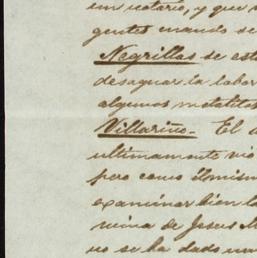 un notario, y que
gentes cuando se
Negrillas se est
desaguar la labor
algunos metalitos
Villariño. El
ultimamente vio
pero como el mismo
examinar bien l
mina de Jesus M
no se ha dado un